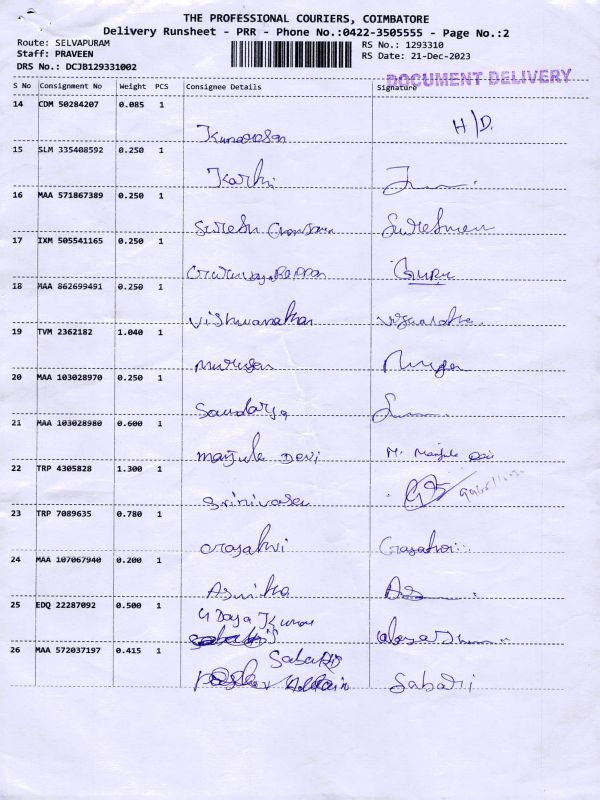 THE PROFESSIONAL COURIERS, COIMBATORE
Delivery Runsheet - PRR - Phone No.:0422-3505555 - Page No.:2
Route: SELVAPURAM
Staff: PRAVEEN
DRS No.: DCJB129331002
RS No.: 1293310
RS Date: 21-Dec-2023
DOCUMENT DELIVERY
S No Consignment No Weight PCS Consignee Details Signature
14 CDM 50284207 0.085 1
H/D.
15 SLM 335408592 0.250 1
Karthi
16 MAA 571867389 0.250 1
Suresh
17 IXM 505541165 0.250 1
Guru
18 MAA 862699491 0.250 1
Vishwanathan
19 TVM 2362182 1.040 1
Murugan
20 MAA 103028970 0.250 1
Soundarya
21 MAA 103028980 0.600 1
Manjula Devi M. Manjula
22 TRP 4305828 1.300 1
Srinivasan
23 TRP 7089635 0.780 1
24 MAA 107067940 0.200 1
25 EDQ 22287092 0.500 1
Udaya Kumar
26 MAA 572037197 0.415 1
Sabari